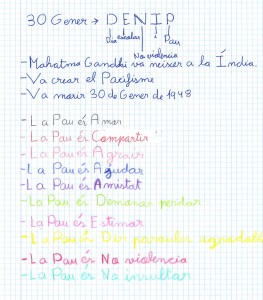 30 Gener → DENIP
Dia escolar No violencia i Pau
- Mahatma Gandhi va neixer a la Índia.
- Va crear el Pacifisme
- Va morir 30 de Gener de 1948
- La Pau és Amar
- La Pau és Compartir
- La Pau és Agrair
- La Pau és Ajudar
- La Pau és Amistat
- La Pau és Demanar perdar
- La Pau és Estimar
- La Pau és Dir paraules agradables
- La Pau és No violencia
- La Pau és No insultar